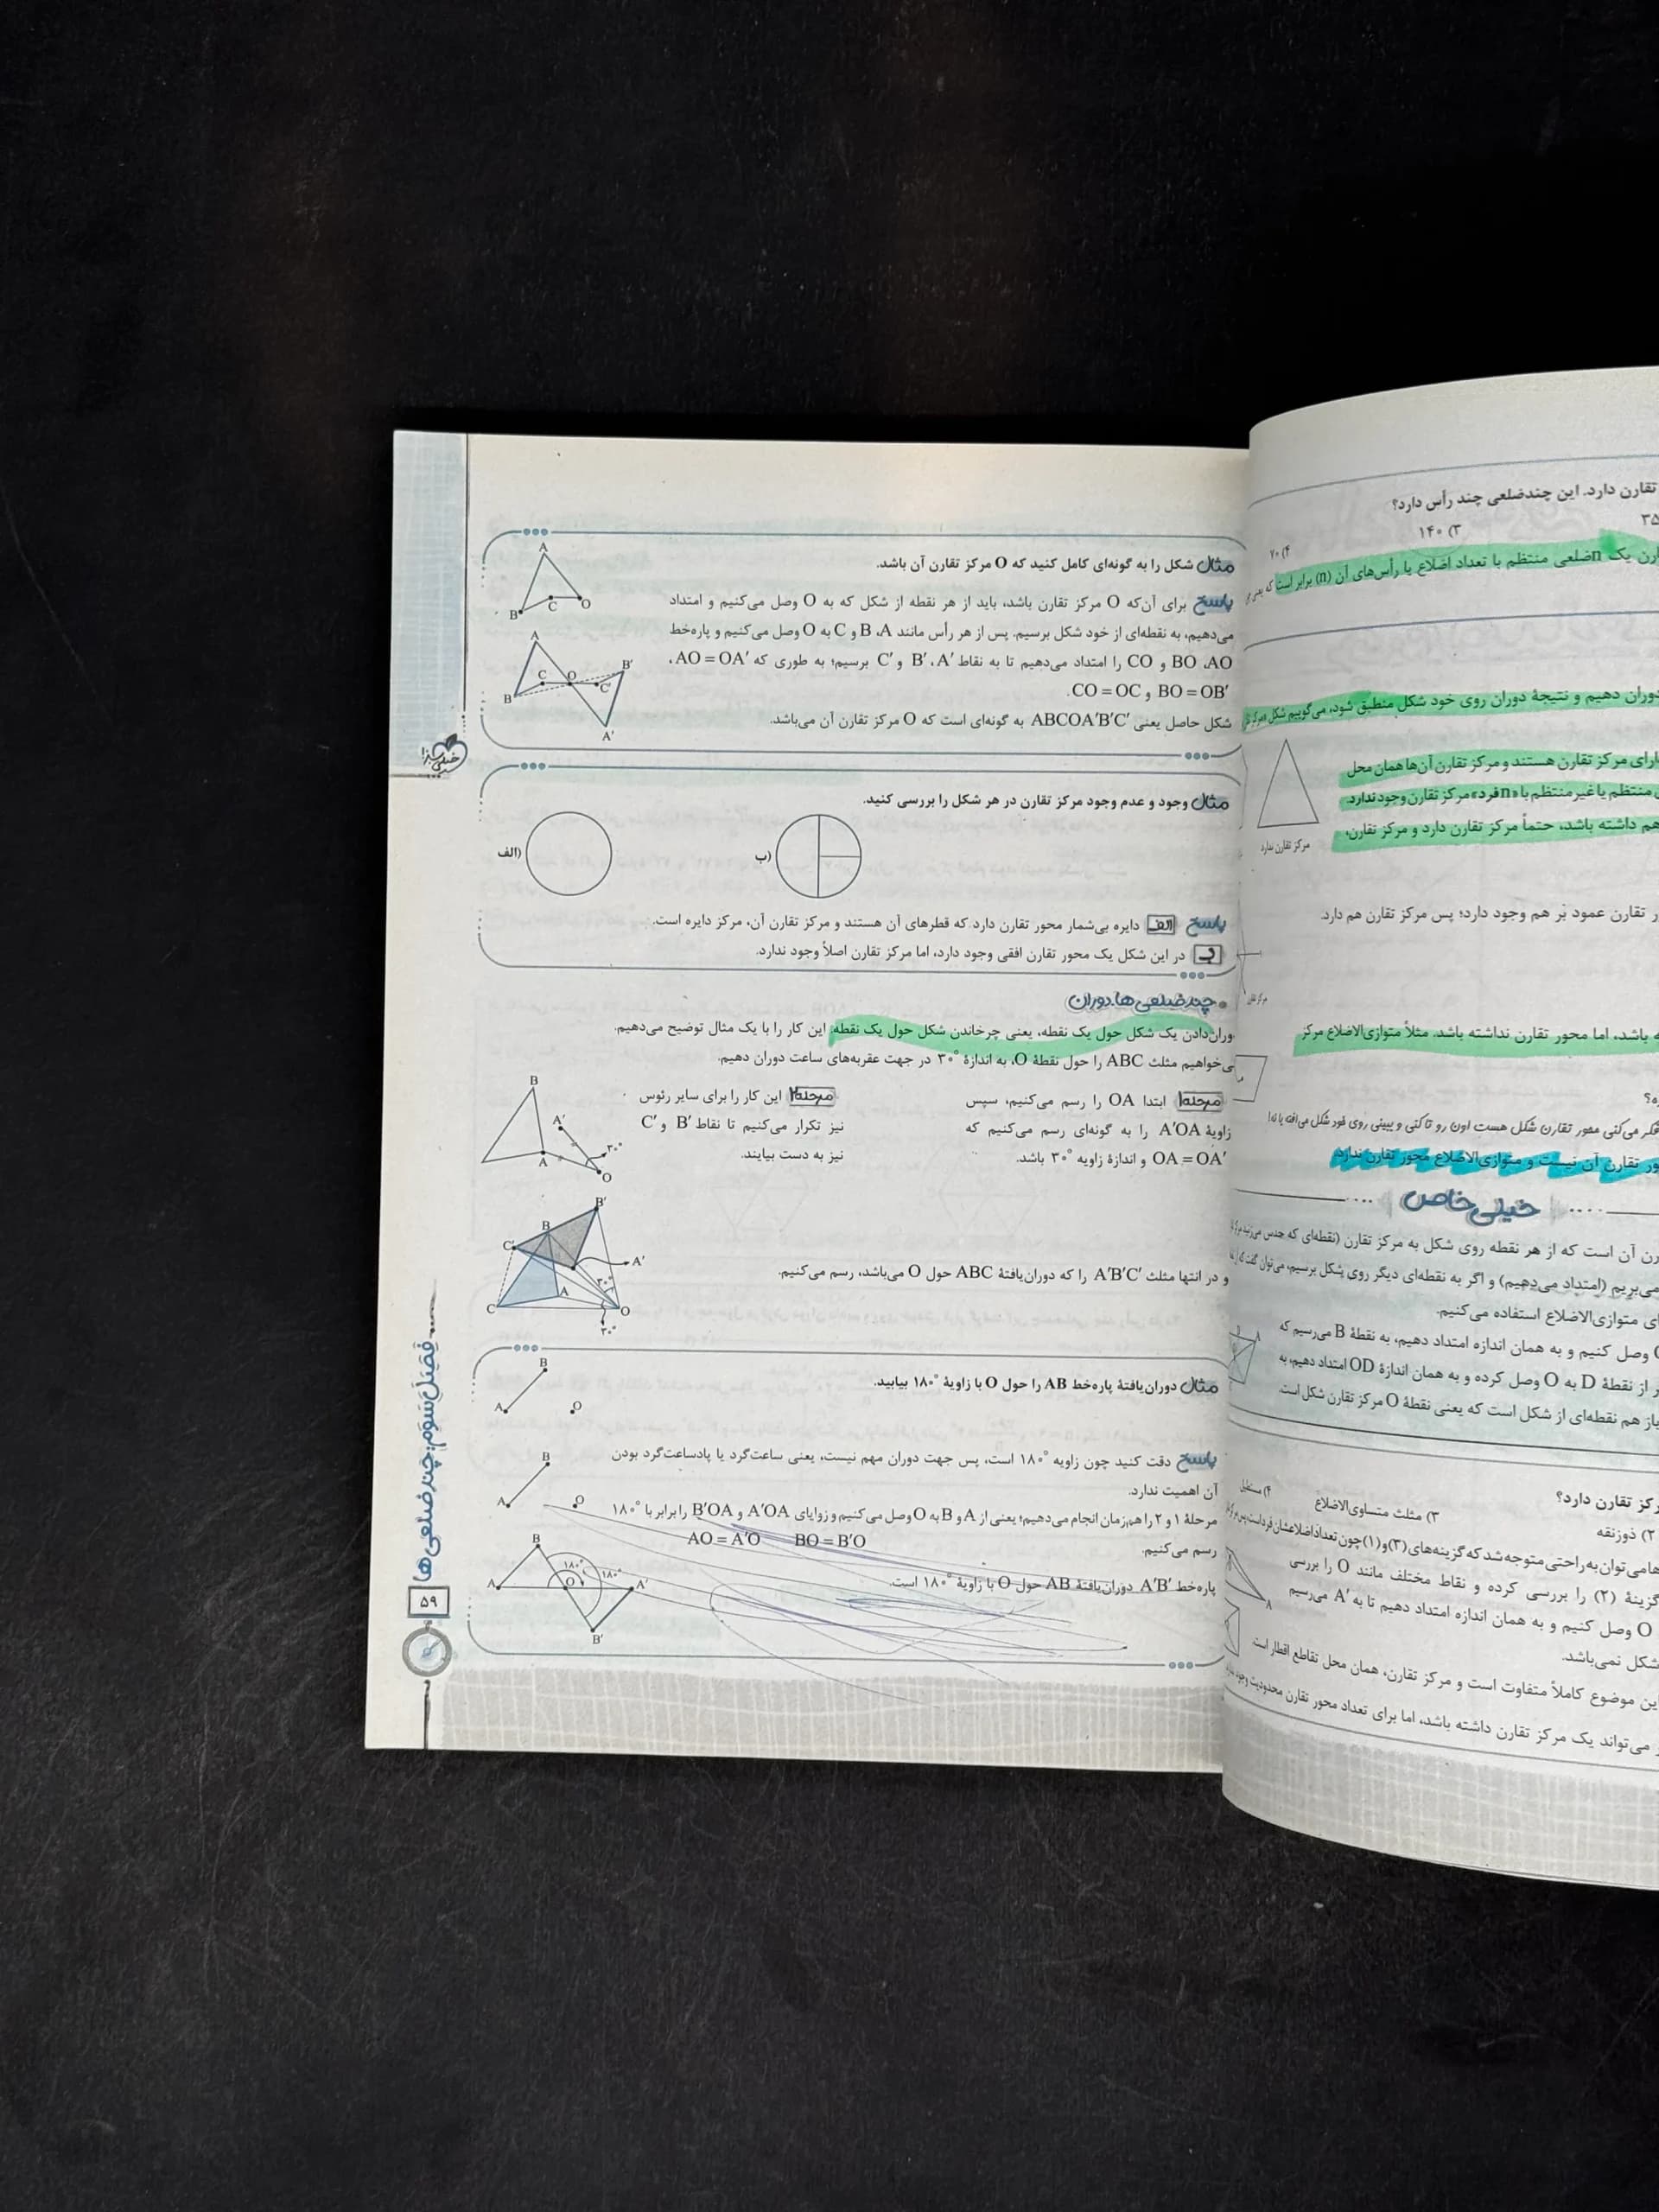 مثال شکل را به گونه‌ای کامل کنید که O مرکز تقارن آن باشد.
پاسخ برای آن‌که O مرکز تقارن باشد، باید از هر نقطه از شکل که به O وصل می‌کنیم و امتداد
می‌دهیم، به نقطه‌ای از خود شکل برسیم. پس از هر رأس مانند A، B و C به O وصل می‌کنیم و پاره‌خط
AO، BO و CO را امتداد می‌دهیم تا به نقاط A′، B′ و C′ برسیم؛ به طوری که AO = OA′،
BO = OB′ و CO = OC.
شکل حاصل یعنی ABCOA′B′C′ به گونه‌ای است که O مرکز تقارن آن می‌باشد.
A
B
C
O
A
B
C
O
C′
B′
A′
خیلی سبز
مثال وجود و عدم وجود مرکز تقارن در هر شکل را بررسی کنید.
الف)
ب)
پاسخ الف دایره بی‌شمار محور تقارن دارد که قطرهای آن هستند و مرکز تقارن آن، مرکز دایره است.
ب در این شکل یک محور تقارن افقی وجود دارد، اما مرکز تقارن اصلاً وجود ندارد.
چندضلعی‌ها، دوران
وران‌دادن یک شکل حول یک نقطه، یعنی چرخاندن شکل حول یک نقطه. این کار را با یک مثال توضیح می‌دهیم.
ی‌خواهیم مثلث ABC را حول نقطهٔ O، به اندازهٔ ۳۰° در جهت عقربه‌های ساعت دوران دهیم.
مرحله۱ ابتدا OA را رسم می‌کنیم، سپس
زاویهٔ A′OA را به گونه‌ای رسم می‌کنیم که
OA = OA′ و اندازهٔ زاویه ۳۰° باشد.
مرحله۲ این کار را برای سایر رئوس
نیز تکرار می‌کنیم تا نقاط B′ و C′
نیز به دست بیایند.
B
A′
A
۳۰°
O
و در انتها مثلث A′B′C′ را که دوران‌یافتهٔ ABC حول O می‌باشد، رسم می‌کنیم.
B′
B
C′
A′
۳۰°
A
C
O
۳۰°
مثال دوران‌یافتهٔ پاره‌خط AB را حول O با زاویهٔ ۱۸۰° بیابید.
B
A
O
پاسخ دقت کنید چون زاویه ۱۸۰° است، پس جهت دوران مهم نیست، یعنی ساعت‌گرد یا پادساعت‌گرد بودن
آن اهمیت ندارد.
مرحلهٔ ۱ و ۲ را هم‌زمان انجام می‌دهیم؛ یعنی از A و B به O وصل می‌کنیم و زوایای A′OA و B′OA را برابر با ۱۸۰°
رسم می‌کنیم.
AO = A′O BO = B′O
پاره‌خط A′B′ دوران‌یافتهٔ AB حول O با زاویهٔ ۱۸۰° است.
B
A
O
B
۱۸۰°
۱۸۰°
A
O
A′
B′
فصل سوم: چندضلعی‌ها
۵۹
تقارن دارد. این چندضلعی چند رأس دارد؟
۳۵
۳) ۱۴۰
۴) ۷۰
یک nضلعی منتظم با تعداد اضلاع یا رأس‌های آن (n) برابر است
دوران دهیم و نتیجهٔ دوران روی خود شکل منطبق شود، می‌گوییم شکل
ارای مرکز تقارن هستند و مرکز تقارن آن‌ها همان محل
منتظم یا غیرمنتظم با «n فرد» مرکز تقارن وجود ندارد.
هم داشته باشد، حتماً مرکز تقارن دارد و مرکز تقارن،
مرکز تقارن ندارد
ر تقارن عمود بر هم وجود دارد؛ پس مرکز تقارن هم دارد.
ه باشد، اما محور تقارن نداشته باشد. مثلاً متوازی‌الاضلاع مرکز
فکر می‌کنی محور تقارن شکل هست اون رو تا کنی و ببینی روی خود شکل می‌افته یا نه!
ور تقارن آن نیست و متوازی‌الاضلاع محور تقارن ندارد.
خیلی خاص
رن آن است که از هر نقطه روی شکل به مرکز تقارن (نقطه‌ای که حدس می‌زنید
می‌بریم (امتداد می‌دهیم) و اگر به نقطه‌ای دیگر روی شکل برسیم، می‌توان گفت که
ای متوازی‌الاضلاع استفاده می‌کنیم.
O وصل کنیم و به همان اندازه امتداد دهیم، به نقطهٔ B می‌رسیم که
ر از نقطهٔ D به O وصل کرده و به همان اندازهٔ OD امتداد دهیم، به
باز هم نقطه‌ای از شکل است که یعنی نقطهٔ O مرکز تقارن شکل است.
رکز تقارن دارد؟
۲) ذوزنقه
۳) مثلث متساوی‌الاضلاع
۴) مستطیل
هامی‌توان به راحتی متوجه شد که گزینه‌های (۳) و (۱) چون تعداد اضلاعشان فرد است
گزینهٔ (۲) را بررسی کرده و نقاط مختلف مانند O را بررسی
O وصل کنیم و به همان اندازه امتداد دهیم تا به A′ می‌رسیم
شکل نمی‌باشد.
این موضوع کاملاً متفاوت است و مرکز تقارن، همان محل تقاطع اقطار است.
ر می‌تواند یک مرکز تقارن داشته باشد، اما برای تعداد محور تقارن محدودیت